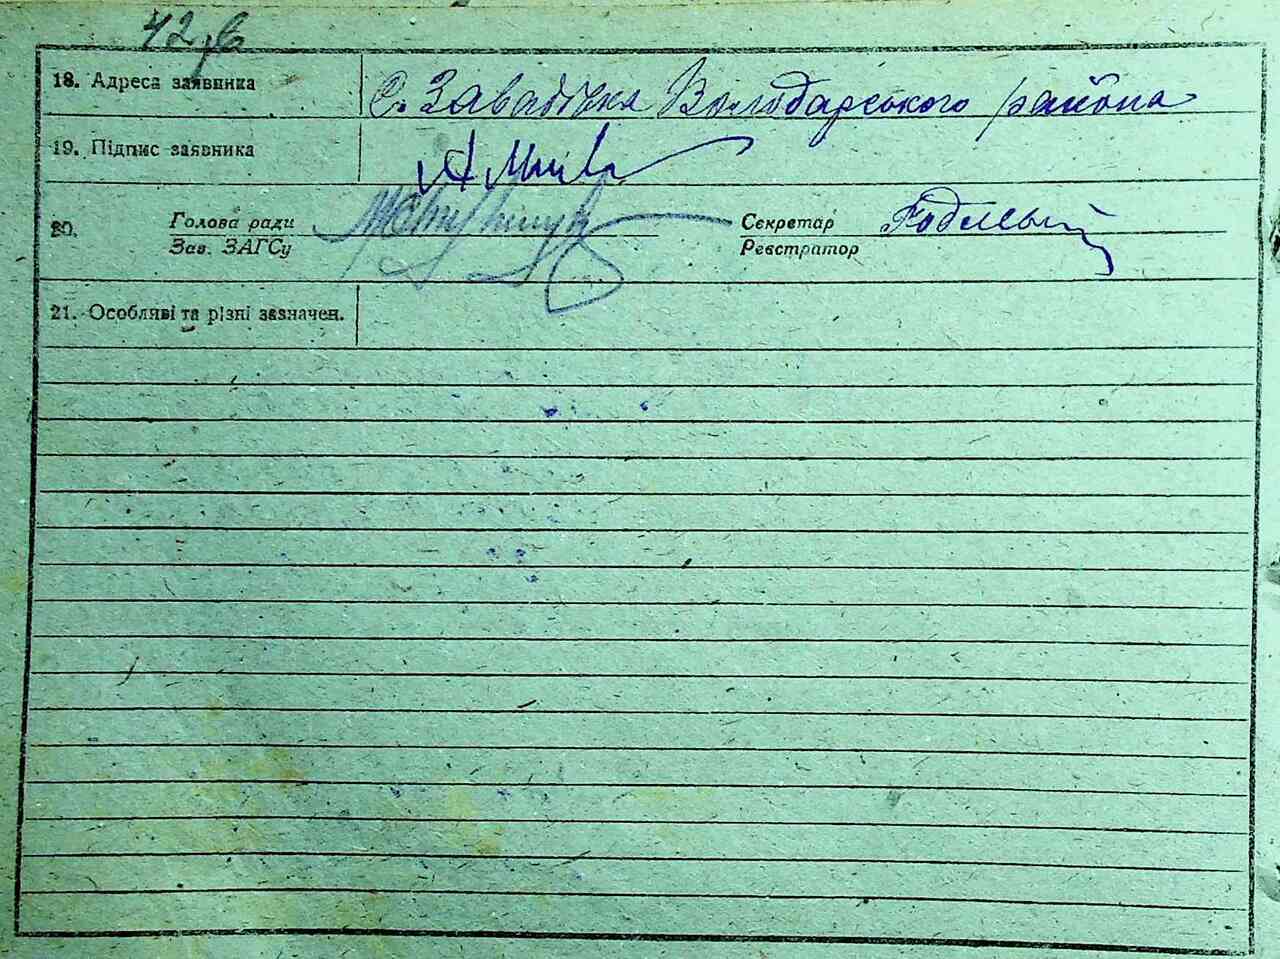 42
18. Адреса заявника С. Завадівка Володарського района
19. Підпис заявника
20. Голова ради Секретар
Зав. ЗАГСу Реєстратор
21. Особляві та різні зазначен.